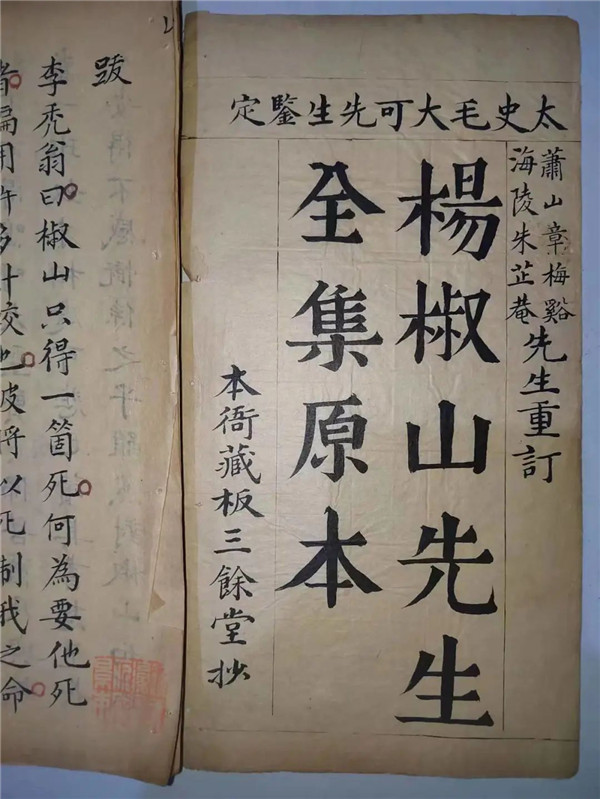 太史毛大可先生鑒定
蕭山章梅谿
海陵朱芷菴
先生重訂
楊椒山先生
全集原本
本衙藏板三餘堂抄
跋
李禿翁曰椒山只得一箇死何為要他死
者偏用許多計較也彼將以死制我之命